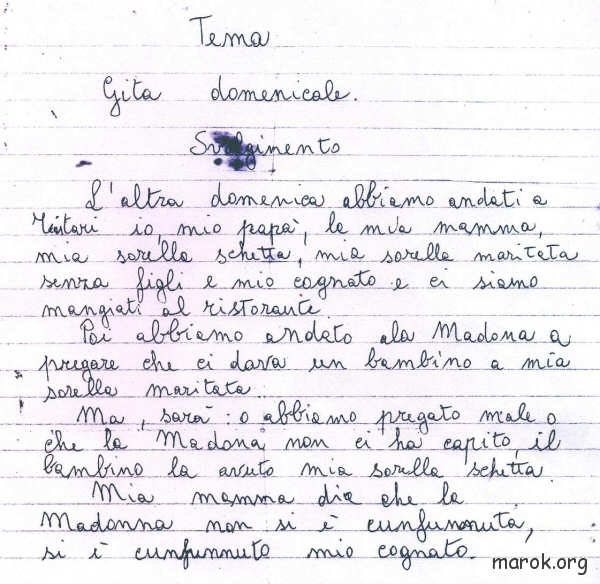 Tema
Gita domenicale.
Svolgimento
L'altra domenica abbiamo andati a
Tindari io, mio papà, la mia mamma,
mia sorella schetta, mia sorella maritata
senza figli e mio cognato e ci siamo
mangiati al ristorante.
Poi abbiamo andato ala Madona a
pregare che ci dava un bambino a mia
sorella maritata.
Ma, sarà: o abbiamo pregato male o
che la Madona, non ci ha capito, il
bambino la avuto mia sorella schetta.
Mia mamma dice che la
Madonna non si è cunfunnuta,
si è cunfunnuto mio cognato.
marok.org